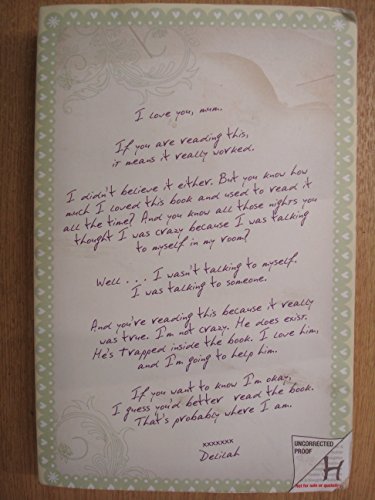 I love you, mum.
If you are reading this,
it means it really worked.
I didn't believe it either. But you know how
much I loved this book and used to read it
all the time? And you know all those nights you
thought I was crazy because I was talking
to myself in my room?
Well . . . I wasn't talking to myself.
I was talking to someone.
And you're reading this because it really
was true. I'm not crazy. He does exist.
He's trapped inside the book. I love him,
and I'm going to help him.
If you want to know I'm okay,
I guess you'd better read the book.
That's probably where I am.
xxxxxxx
Delilah
UNCORRECTED
PROOF
H
Not for sale or quotation